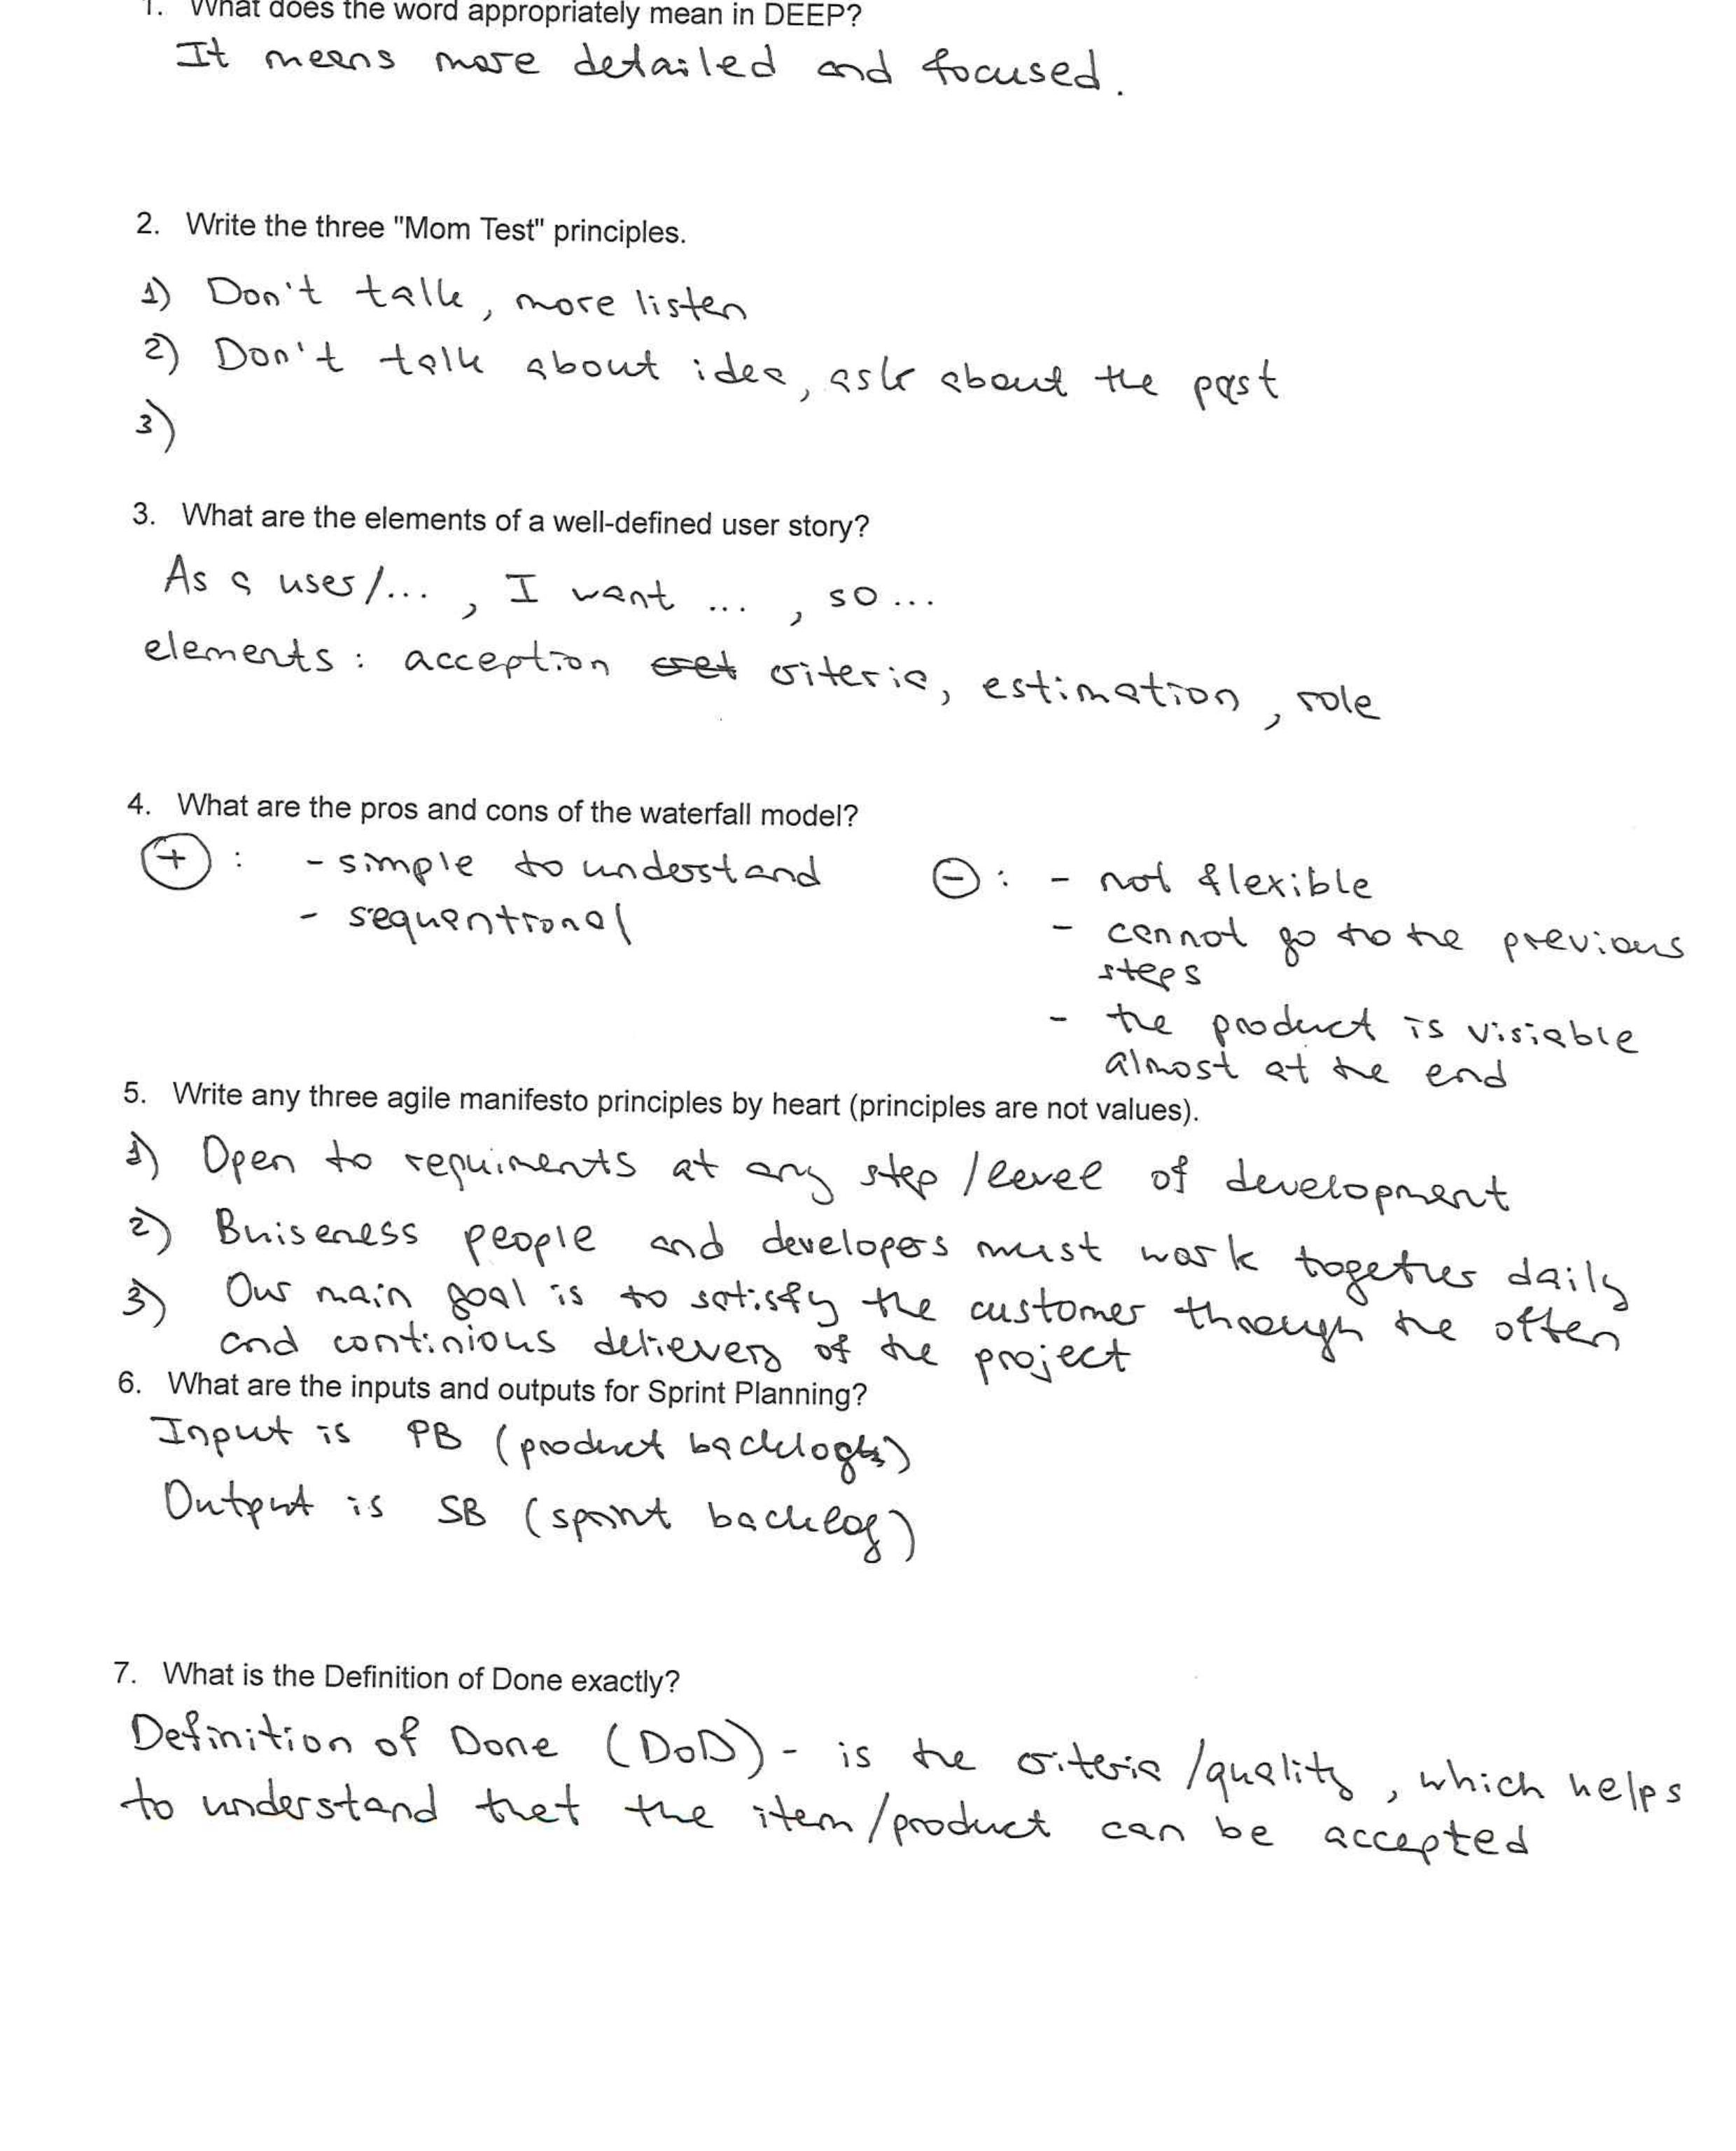 1. What does the word appropriately mean in DEEP?
It means more detailed and focused.
2. Write the three "Mom Test" principles.
1) Don't talk, more listen
2) Don't talk about idea, ask about the past
3)
3. What are the elements of a well-defined user story?
As a user/... , I want ... , so ...
elements: acception cret criteria, estimation, role
4. What are the pros and cons of the waterfall model?
+ : - simple to understand
- sequentional
- : - not flexible
- cannot go to the previous
steps
- the product is visiable
almost at the end
5. Write any three agile manifesto principles by heart (principles are not values).
1) Open to requiments at any step/level of development
2) Buiseness people and developers must work together daily
3) Our main goal is to satisfy the customer through the often
and continious delievery of the project
6. What are the inputs and outputs for Sprint Planning?
Input is PB (product backlogs)
Output is SB (sprint backlog)
7. What is the Definition of Done exactly?
Definition of Done (DoD) - is the criteria/quality, which helps
to understand that the item/product can be accepted